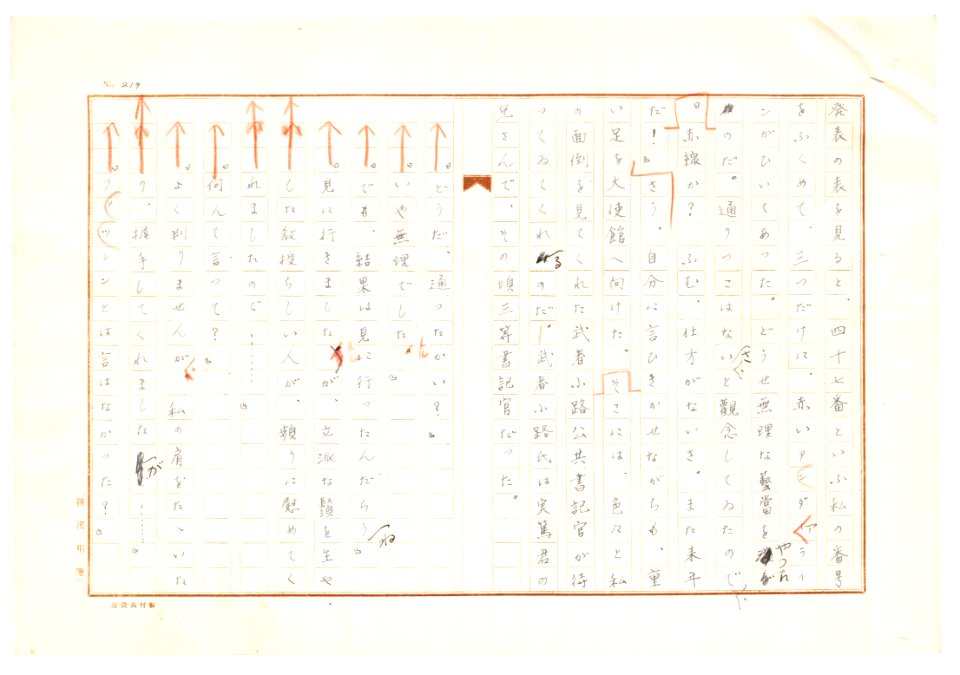 No. 214
発表の表を見ると、四十七番といふ私の番号
をふくめて、三つだけに、赤いアンダアライ
ンがひいてあった。どうせ無理な藝當をやった
のだ。通りっこはないさ、と観念してゐたので、
。赤線か？ふむ、仕方がないさ。また来年
だ！』さう、自分に言ひきかせながらも、重
い足を大使館へ向けた。そこには、色々と私
の面倒を見てくれた武者小路公共書記官が待
ってゐてくれるのだ！武者小路氏は実篤君の
兄さんで、その頃三等書記官だった。
『どうだ、通ったかい？』
『いや無理でした』
『でも、結果は見に行ったんだらうね』
『見に行きましたが、立派な鬚を生や
した教授らしい人が、頻りに慰めてく
れましたので………』
『何んて言って？』
『よく判りませんが、私の肩をたゝいた
り、握手してくれましたが………』
『フッレンとは言はなかった？』